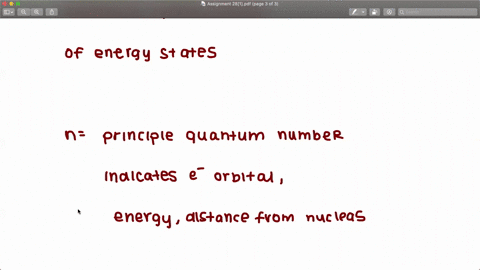 Assignment 28(1).pdf (page 3 of 3)
of energy states
n= principle quantum number
indicates e⁻ orbital,
energy, distance from nucleas